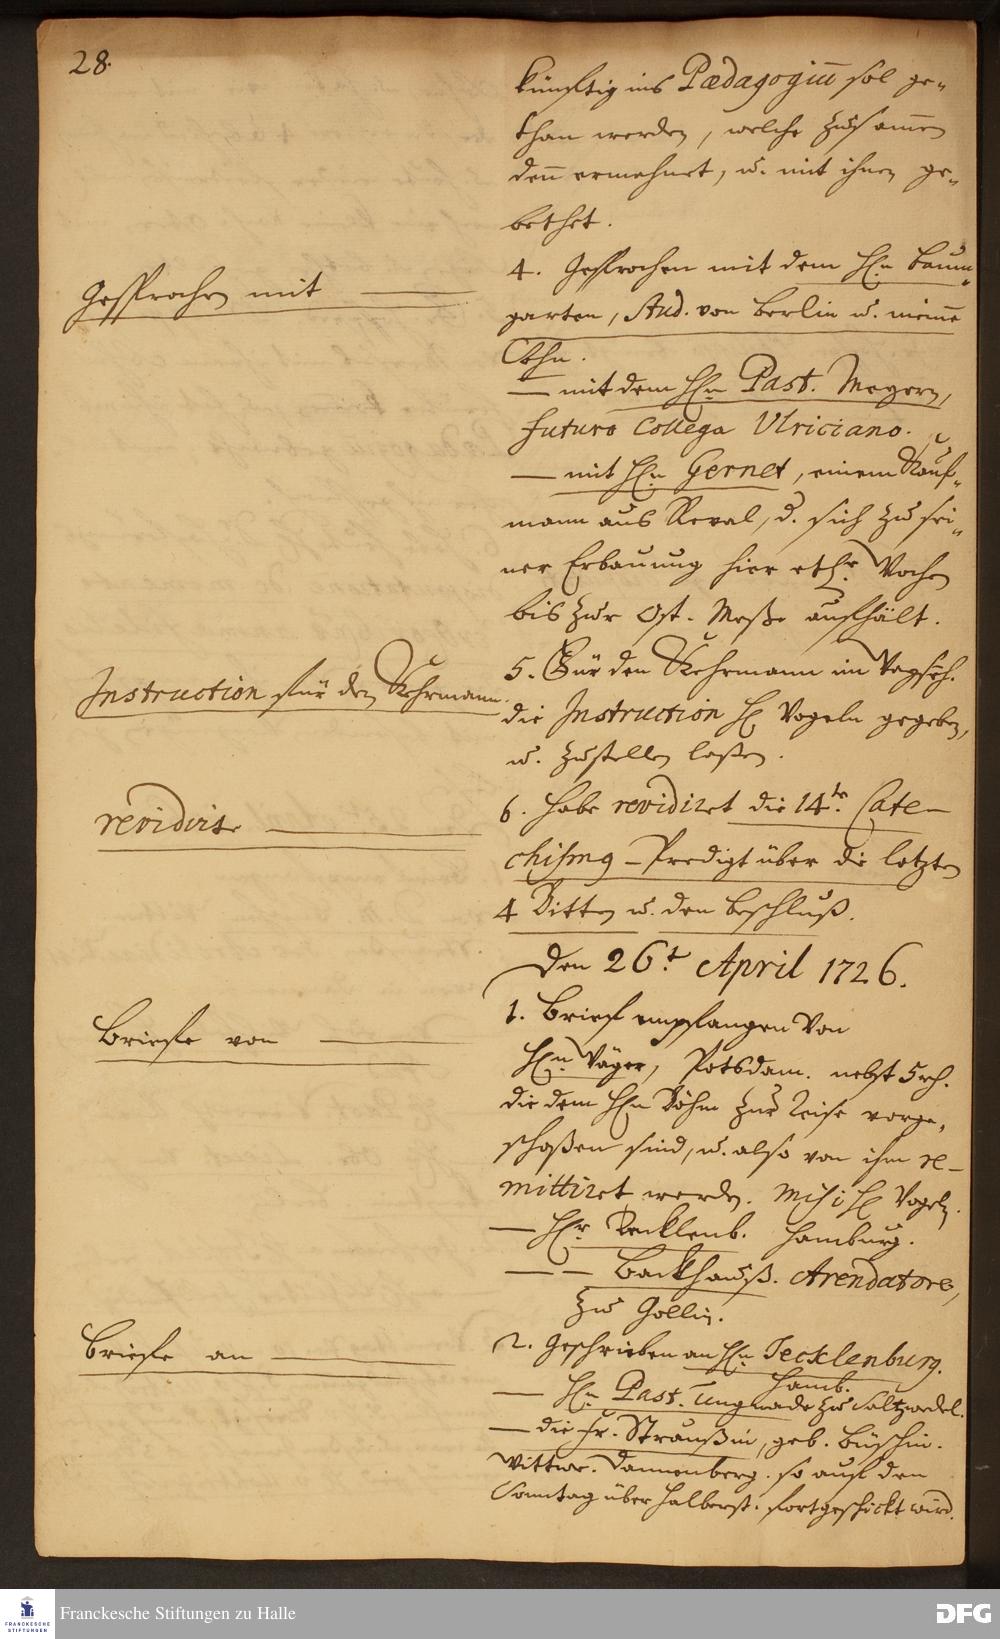 28.
künftig ins Pædagogiu̅ sol ge-
than werden, welche zusam̅en
den̅ ermahnet, u. mit ihnen ge-
bethet.
Gesprochen mit
4. Gesprochen mit dem HE.n Baum-
garten, Stud. von Berlin u. meine̅
Sohn.
— mit dem HEn Past. Meyern,
futuro Collega Ulriciano.
— mit HE.n Gernet, einem Kauf-
mann aus Reval, d. sich zu sei-
ner Erbauung hier etl. Wochen
bis zur Ost. Meße aufhält.
Instruction für den Kehrmann
5. Für den Kehrmann im Waysenh.
die Instruction HE Vogeln gegeben,
u. zustellen laßen.
revidirte
6. habe revidiret die 14te Cate-
chismg - Predigt über die letzten
4 Bitten u. den Beschluß.
Den 26.t April 1726.
Briefe von
1. Brief empfangen von
HE.n Jäger, Potsdam. nebst 5 rh.
die dem HEn Böhm zur Reise vorge-
schoßen sind, u. also von ihm re-
mittiret werden. Misi HE Vogeln.
— HEr. Tecklenb. Hamburg.
— — Backhauß. Arendatore,
zu Gollin.
Briefe an
2. Geschrieben an HE.n Tecklenburg.
Hamb.
— HE.n Past. Ungnade zu Saltzwedel.
— die Fr. Straußin, geb. Büschin.
Wittwe. Dannenberg. so auf den
Sonntag über Halberst. fortgeschickt wird.
FRANCKESCHE
STIFTUNGEN
Franckesche Stiftungen zu Halle
DFG